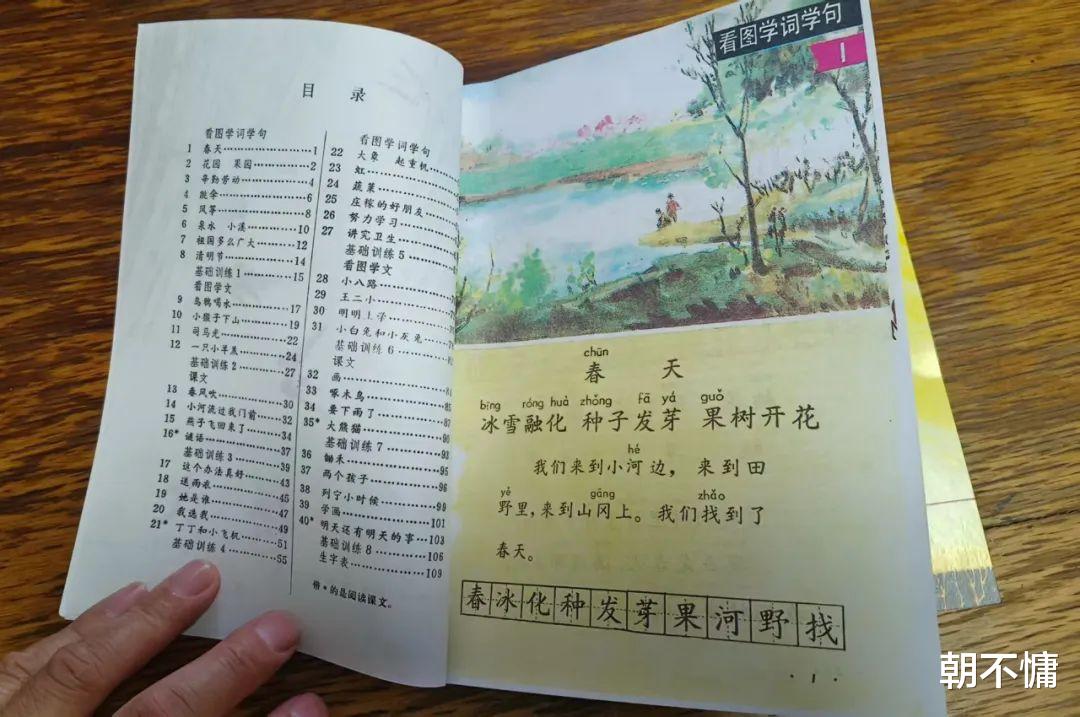 目 录
看图学词学句
1 春天……………1
2 花园 果园…………2
3 辛勤劳动…………4
4 跳伞……………6
5 风筝……………8
6 泉水 小溪…………10
7 祖国多么广大………12
8 清明节……………14
基础训练1…………15
看图学文
9 乌鸦喝水…………17
10 小猴子下山………19
11 司马光……………22
12 一只小羊羔………24
基础训练2…………27
课文
13 春风吹……………30
14 小河流过我门前……32
15 燕子飞回来了………34
16* 谜语……………37
基础训练3…………39
17 这个办法真好………43
18 送雨衣……………45
19 她是谁……………47
20 我选我……………49
21* 丁丁和小飞机………51
基础训练4…………55
看图学词学句
22 大象 起重机………
23 虹………………
24 蔬菜……………
25 庄稼的好朋友………
26 努力学习…………
27 讲究卫生…………
基础训练5…………
看图学文
28 小八路……………
29 王二小……………
30 明明上学…………
31 小白兔和小灰兔……
基础训练6…………
课文
32 画………………
33 啄木鸟……………85
34 要下雨了…………87
35* 大熊猫…………90
基础训练7…………93
36 锄禾……………95
37 两个孩子…………96
38 列宁小时候…………99
39 学画……………101
40* 明天还有明天的事…103
基础训练8…………106
生字表……………109
带*的是阅读课文。
看图学词学句
1
chūn
春 天
bīng róng huà zhǒng fā yá guǒ
冰雪融化 种子发芽 果树开花
hé
我们来到小河边，来到田
yě gāng zhǎo
野里，来到山冈上。我们找到了
春天。
春冰化种发芽果河野找
·1·
朝不慵